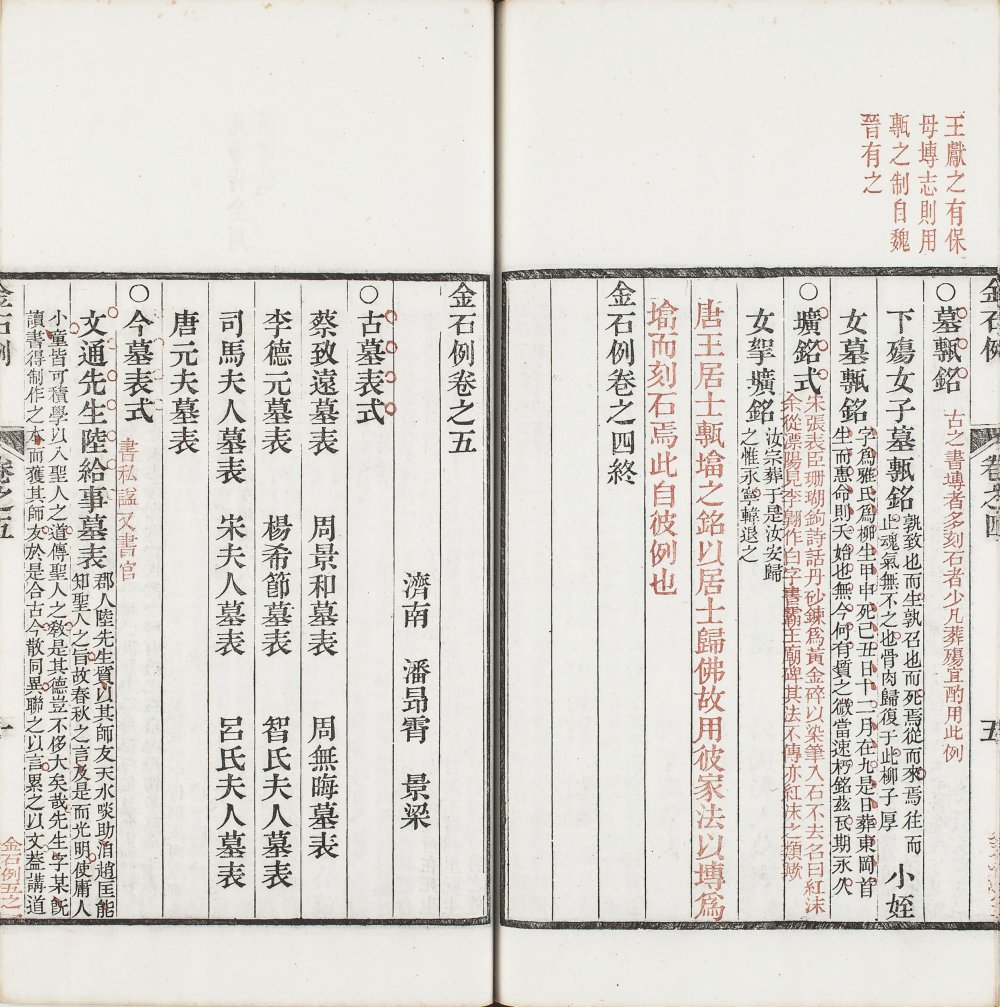 王獻之有保
母塼志則用
甎之制自魏
晉有之
金石例
卷之四
五
○墓甎銘
古之書塼者多刻石者少凡葬殤宜酌用此例
下殤女子墓甎銘
孰致也而生孰召也而死焉從而來焉往而
止魂氣無不之也骨肉歸復于此柳子厚
小姪
女墓甎銘
字爲雅氏爲柳生甲申死己丑日十二月在九是日葬東岡首
生而惠命則夭始也無今何有質之微當速朽銘茲瓦期永久
○壙銘式
宋張表臣珊瑚鉤詩話丹砂鍊爲黃金碎以染筆入石不去名曰紅沫
余從溧陽見李翱作白字書霸王廟碑其法不傳亦紅沫之類歟
女挐壙銘
汝宗葬于是汝安歸
之惟永寧韓退之
唐王居士甎墖之銘以居士歸佛故用彼家法以塼爲
墖而刻石焉此自彼例也
金石例卷之四終
金石例卷之五
濟南　潘昂霄　景梁
○古墓表式
蔡致遠墓表　周景和墓表　周無晦墓表
李德元墓表　楊希節墓表　智氏夫人墓表
司馬夫人墓表　宋夫人墓表　呂氏夫人墓表
唐元夫墓表
○今墓表式
書私諡又書官
文通先生陸給事墓表
郡人陸先生質以其師友天水啖助洎趙匡能
知聖人之旨故春秋之言及是而光明使庸人
小童皆可積學以入聖人之道傳聖人之敎是其德豈不侈大矣哉先生字某旣
讀書得制作之本而獲其師友於是合古今散同異聯之以言累之以文蓋講道
金石例
卷之五
一
金石例五之一